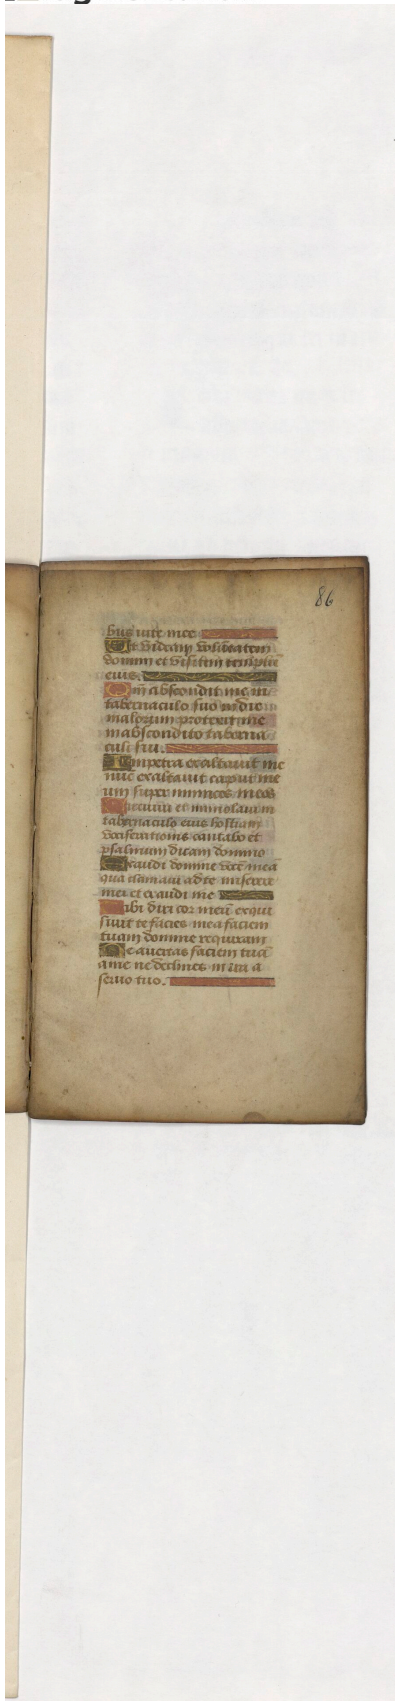 86
bus vite mee
Ut videam volūtatem
domini et visitem templū
eius.
Qm̄ abscondit me in
tabernaculo suo in die
malorum protexit me
in abscondito taberna
culi sui.
In petra exaltavit me
nūc exaltavit caput me
um super inimicos meos
Circuivi et immolavi in
tabernaculo eius hostiam
vociferationis cantabo et
psalmum dicam domino
Exaudi domine vocē meā
qua clamavi ad te miserere
mei et exaudi me
Tibi dixi cor meū exqui
sivit te facies mea faciem
tuam domine requiram
Ne avertas faciem tuā
a me ne declines in ira a
servo tuo.